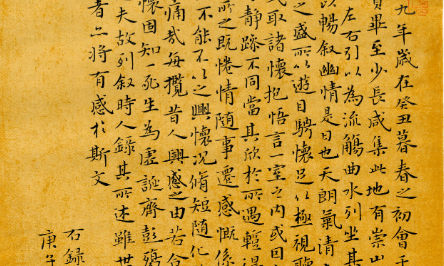 九年歲在癸丑暮春之初會于
賢畢至少長咸集此地有崇山
左右引以為流觴曲水列坐其
以暢叙幽情是日也天朗氣清
之盛所以遊目騁懷足以極視聽
或取諸懷抱悟言一室之内或因
靜躁不同當其欣於所遇暫得
所之既惓情隨事遷感慨係
不能不以之興懷況脩短隨化
痛哉每攬昔人興感之由若合
懷固知死生為虛誕齊彭殤
夫故列叙時人錄其所述雖世
者亦將有感於斯文
右錄
庚